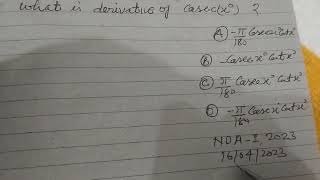 what is derivative of Cosec(x°) ?
(A) -π/180 Cosec x° Cot x°
(B) -Cosec x° Cot x°
(C) π/180 Cosec x° Cot x°
(D) -π/180 Cosec x Cot x°
NDA-I, 2023
16/04/2023